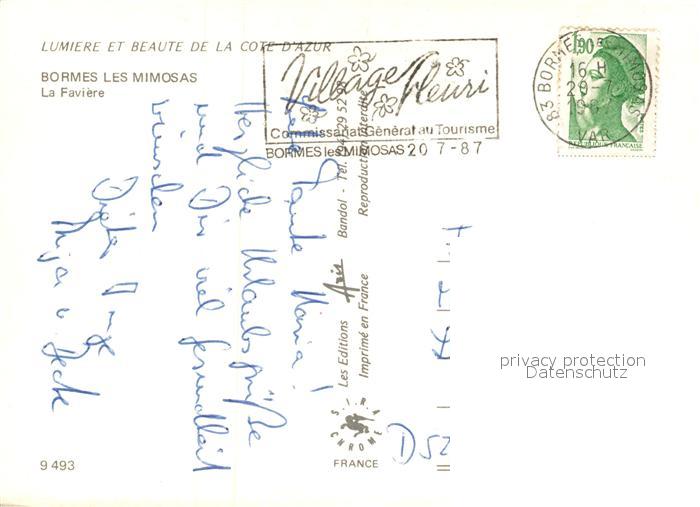 LUMIERE ET BEAUTE DE LA COTE D'AZUR
BORMES LES MIMOSAS
La Favière
Village Fleuri
Commissariat Général au Tourisme
BORMES les MIMOSAS 20 7-87
83 BORMES LES MIMOSAS
16 H
20-7
VAR
1,90
REPUBLIQUE FRANÇAISE
Tante Maria!
Herzliche Urlaubsgrüße
und Dir viel Gesundheit
wünschen
Les Editions Aris Bandol - Tél. 94 29 52
Imprimé en France Reproduction interdite
SIMA CHROME
FRANCE
D 52
privacy protection
Datenschutz
9 493